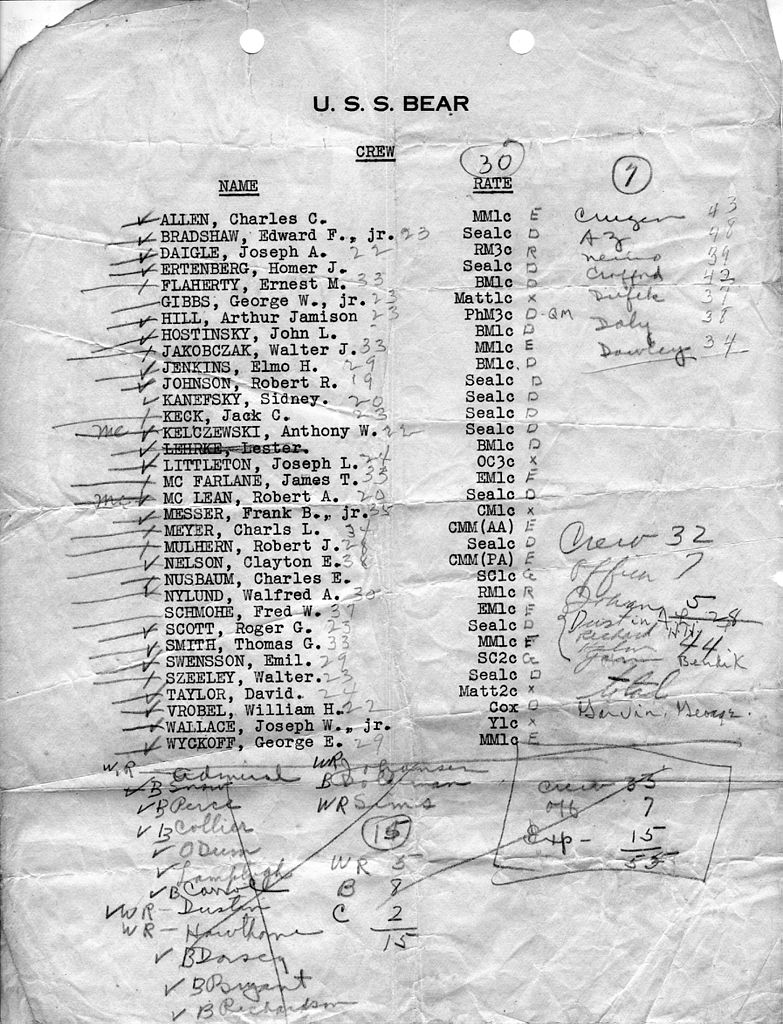 U. S. S. BEAR
CREW 30 7
NAME RATE
ALLEN, Charles C. MM1c E Cruzen 43
BRADSHAW, Edward F., jr. 23 Sea1c D 48
DAIGLE, Joseph A. 22 RM3c R 39
ERTENBERG, Homer J. Sea1c D Crafford 42
FLAHERTY, Ernest M. 33 BM1c D Dufek 37
GIBBS, George W., jr. 23 Matt1c x
HILL, Arthur Jamison 23 PhM3c D-QM Daly 38
HOSTINSKY, John L. BM1c D
JAKOBCZAK, Walter J. 33 MM1c E Dawley 34
JENKINS, Elmo H. 29 BM1c. D
JOHNSON, Robert R. 19 Sea1c D
KANEFSKY, Sidney. 20 Sea1c D
KECK, Jack C. 23 Sea1c D
mc KELCZEWSKI, Anthony W. 22 Sea1c D
LEHRKE, Lester. BM1c D
LITTLETON, Joseph L. 24 OC3c x
MC FARLANE, James T. 33 EM1c E
mc MC LEAN, Robert A. 20 Sea1c D
MESSER, Frank B., jr. 35 CM1c x
MEYER, Charls L. CMM(AA) E
MULHERN, Robert J. Sea1c D Crew 32
NELSON, Clayton E. CMM(PA) E Officers 7
NUSBAUM, Charles E. SC1c
NYLUND, Walfred A. 30 RM1c R 5
SCHMOHE, Fred W. 37 EM1c E Dustin
SCOTT, Roger G. 23 Sea1c D Richard
SMITH, Thomas G. 33 MM1c E 44
SWENSSON, Emil. 29 SC2c
SZEELEY, Walter. 23 Sea1c D
TAYLOR, David. 24 Matt2c x total
VROBEL, William H. 22 Cox D George
WALLACE, Joseph W., jr. Y1c x
WYCKOFF, George E. 29 MM1c E
W.R. Admiral WR
B Snow B
B Perce WR Sims
B Collier 15
O Dum
Lamplugh WR 5
B Carroll B 8
WR - Dustin C 2
WR - Hawthorne 15
B Dorsey
B Bryant
B Richardson
Crew 33
Off 7
Exp - 15
55